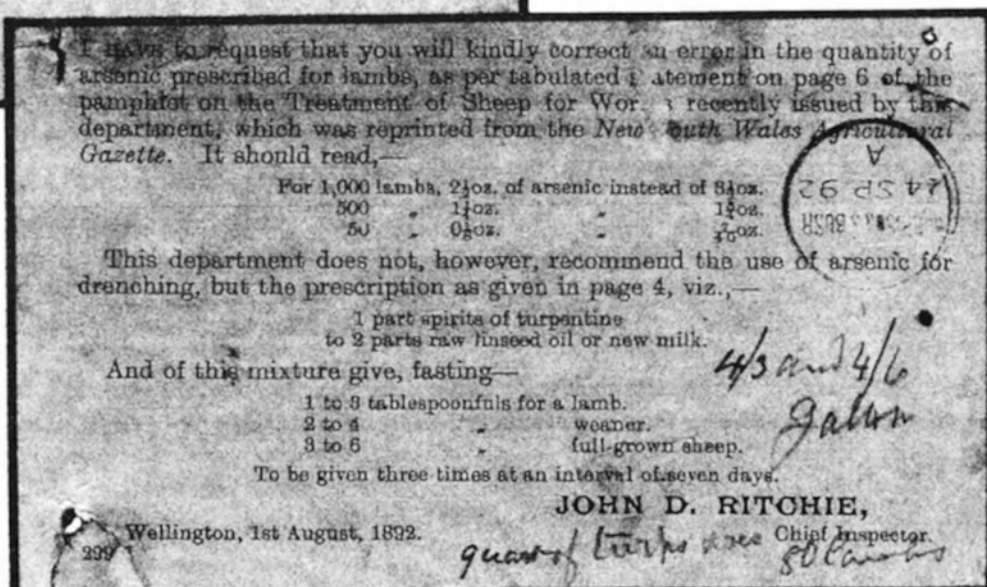 I have to request that you will kindly correct an error in the quantity of
arsenic prescribed for lambs, as per tabulated statement on page 6 of the
pamphlet on the Treatment of Sheep for Wor recently issued by this
department, which was reprinted from the New South Wales Agricultural
Gazette. It should read,—
For 1,000 lambs, 2½oz. of arsenic instead of 3½oz.
500 „ 1¼oz. „ 1¾oz.
50 „ 0⅛oz. „
A
24 SP 92
BUSH
This department does not, however, recommend the use of arsenic for
drenching, but the prescription as given in page 4, viz.,—
1 part spirits of turpentine
to 2 parts raw linseed oil or new milk.
4/3 and 4/6
Gallon
And of this mixture give, fasting—
1 to 3 tablespoonfuls for a lamb.
2 to 4 „ weaner.
3 to 6 „ full-grown sheep.
To be given three times at an interval of seven days.
JOHN D. RITCHIE,
Wellington, 1st August, 1892. Chief Inspector.
299
quart of turps does 80 Lambs